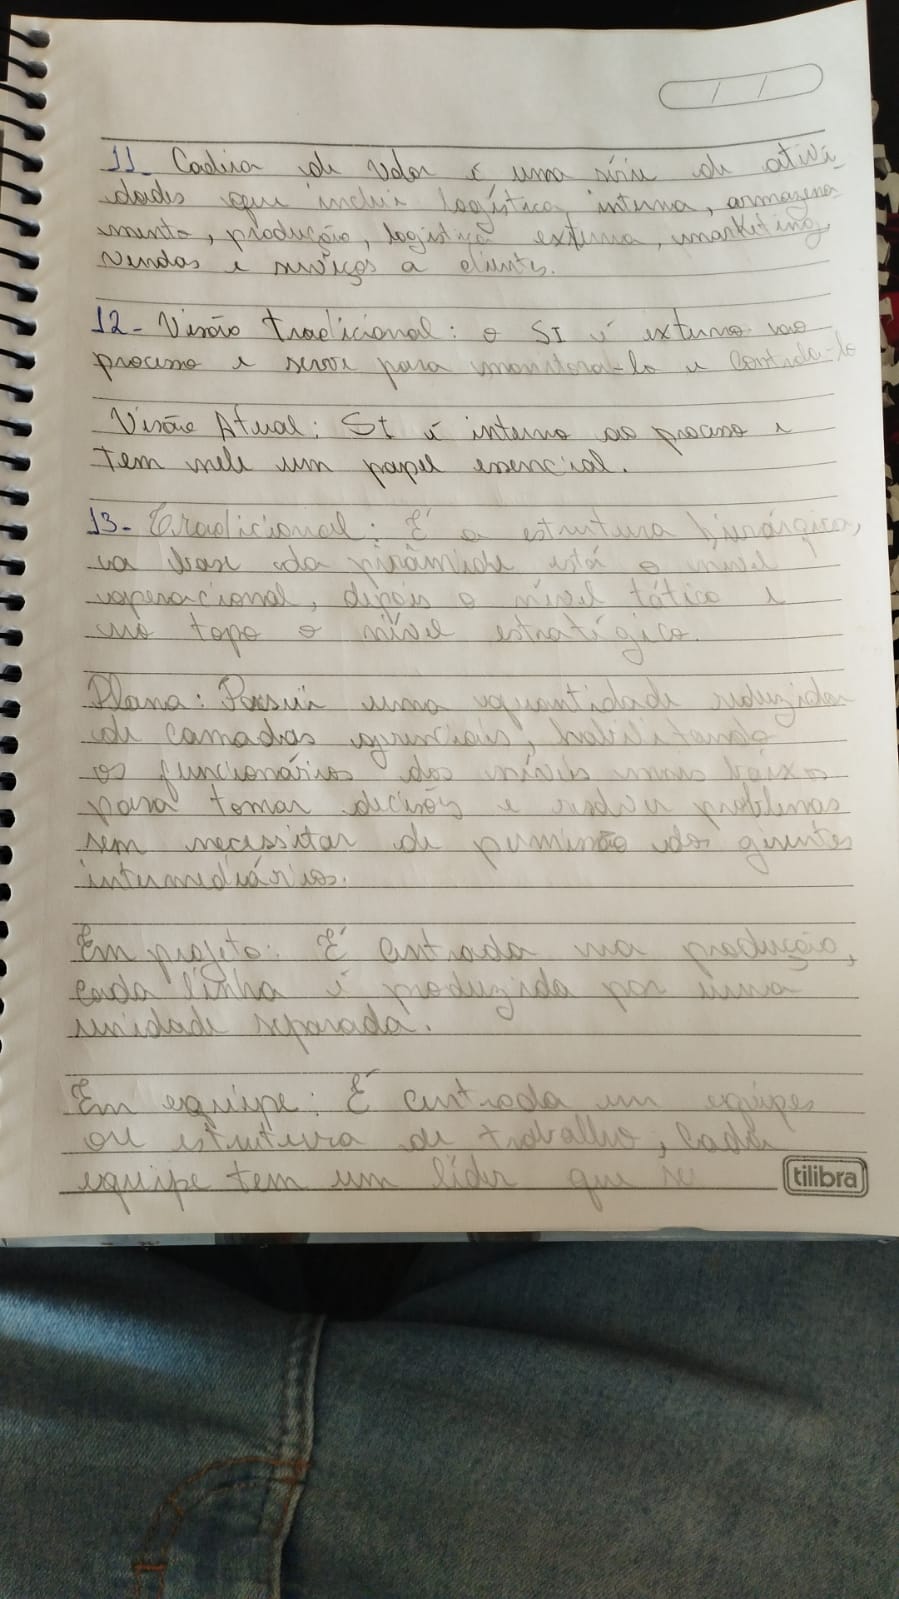 11- Cadeia de valor é uma série de ativi-
dades que inclui logística interna, armazena-
mento, produção, logística externa, marketing,
vendas e serviços a clientes.
12- Visão tradicional: o SI é externo ao
processo e serve para monitora-lo e controla-lo
Visão Atual: SI é interno ao processo e
tem nele um papel essencial.
13- Tradicional: É a estrutura hierárgica,
na base da pirâmide está o nível
operacional, depois o nível tático e
no topo o nível estratégico.
Plana: Possui uma quantidade reduzida
de camadas gerenciais, habilitando
os funcionários dos níveis mais baixos
para tomar decisões e resolver problemas
sem necessitar de permissão dos gerentes
intermediários.
Em projeto: É centrada na produção,
cada linha é produzida por uma
unidade separada.
Em equipe: É centrada em equipes
ou estrutura de trabalho, cada
equipe tem um líder que se
tilibra